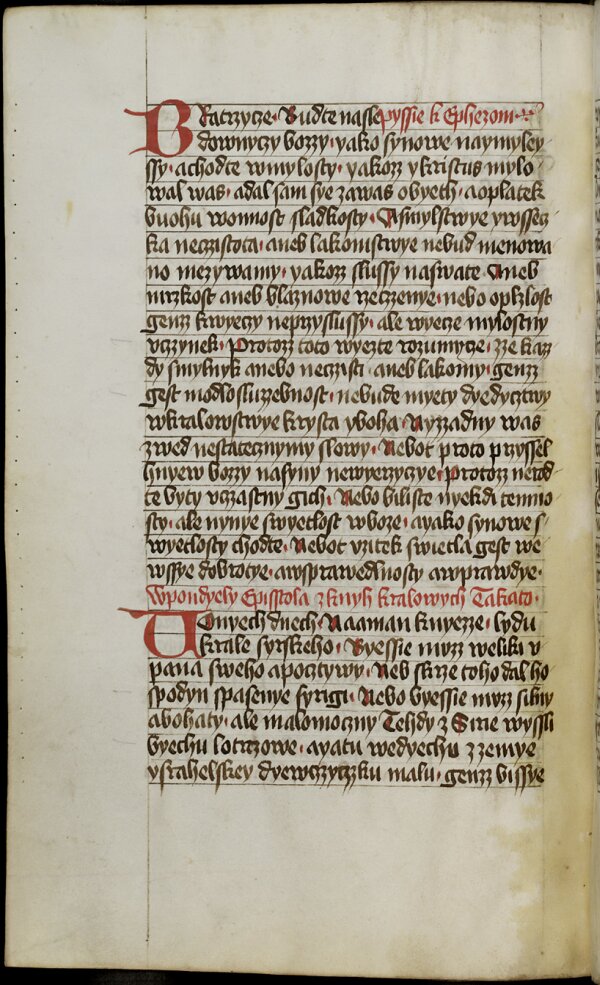 Bratrzycze · Budte nasle pyssie k Ephezom ·
downyczy bozzy · yako synowe naymyley
ssy · a chodte wmylosty · yakozz ykristus mylo
wal was · adal sam sye zawas obyech · aoplatek
buohu wonnost sladkosty · Asmylstwye ywssecz
ka neczistota · aneb lakomstwye nebud menowa
no mezywamy · yakozz slussy naswate Aneb
mrzkost aneb blaznowe rzeczenye · nebo oplzlost
genz kwyeczy neprzyslussy · ale wyecze mylostny
vczynek · Protozz toto wyezte rozumycze · zze kaz
dy smylnyk anebo neczisti · aneb lakomy · genzz
gest modlosluzebnost · nebude myety dyedycztwy
wkralowstwye krysta yboha · Nyzzadny was
zwed nestatecznymy slowy · Nebot proto przyssel
hnyew bozzy nasyny newyerzyczye · Protozz nerod
te byty vczastny gich · Nebo biliste nyekda temno
sty · ale nynye swyetlost wboze · ayako synowe s
wyetlosty chodte · Nebot vzitek swietla gest we
wssye dobrocye · awsprawedlnosty awprawdye ·
Wpondyely Episstola z knyh kralowych Takato ·
Uonyech dnech · Naaman knyezze · lydu
krale syrskeho · Byessie muzz weliky v
pana sweho apocztywy · Neb skrze toho dal ho
spodyn spasenye syrigi · Nebo byessie muzz silny
abohaty · ale malomoczny Tehdy z Sirie wyssli
byechu lotrzowe · ayatu wedyechu z zemye
ysrahelskey dyewczyczku malu · genzz bissye